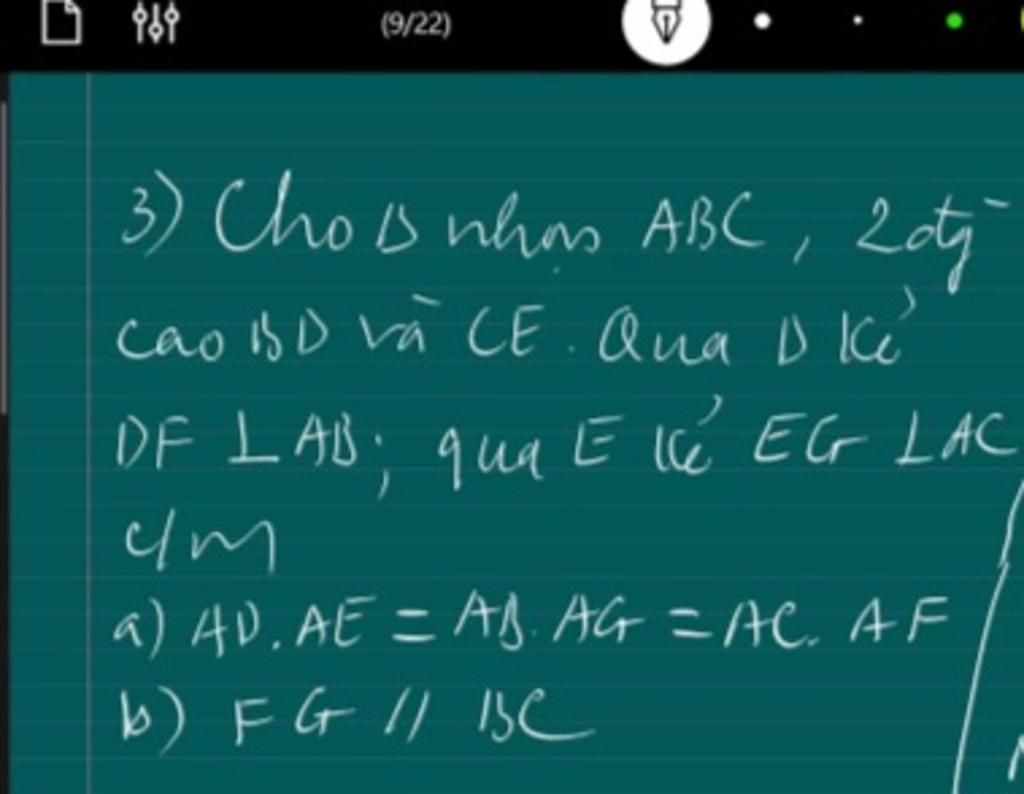 (9/22)
3) Cho Δ nhọn ABC, 2 đg
cao BD và CE. Qua D kẻ
DF ⊥ AB; qua E kẻ EG ⊥ AC
c/m
a) AD. AE = AB. AG = AC. AF
b) FG // BC